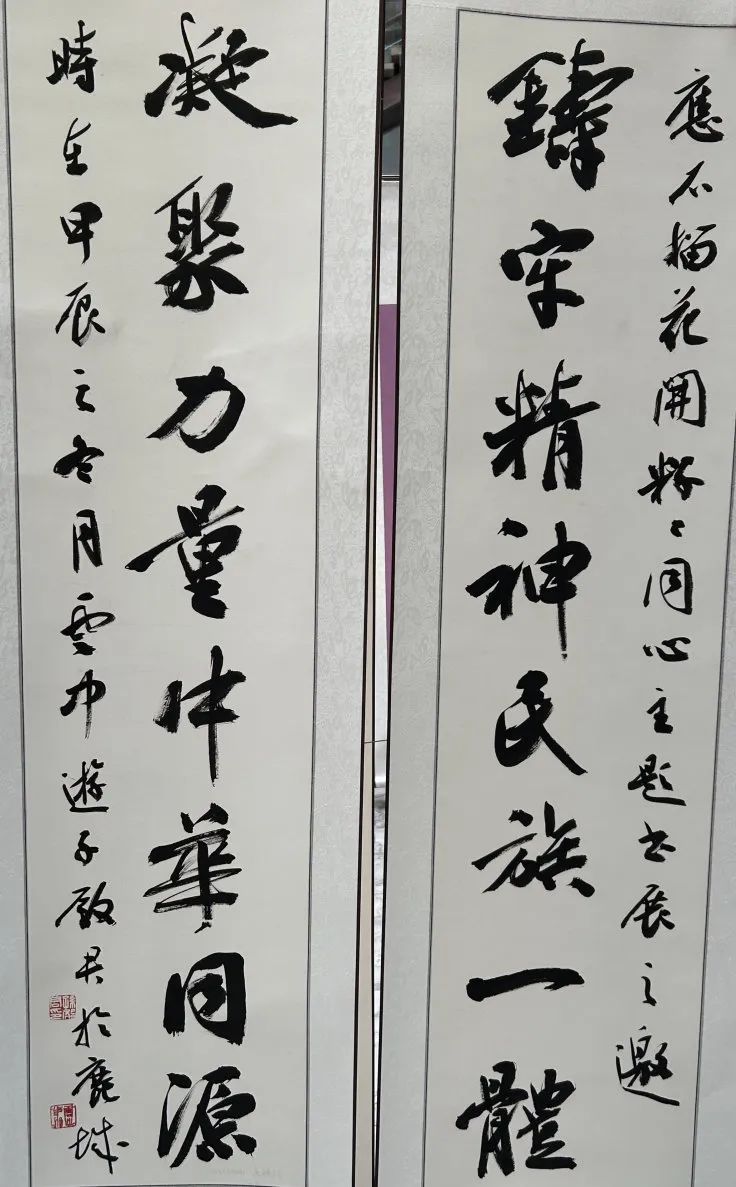 應石榴花開粉〻同心主題書展之邀
鑄牢精神民族一體
凝聚力量中華同源
時在甲辰之冬月雲中遊子啟君於鹿城